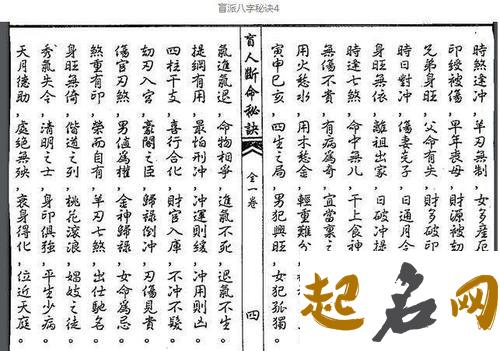 盲派八字秘诀4
時煞逢冲，羊刃無制，女多產厄
印綬被傷，早年喪母，財源被劫
兄弟身旺，父命有失，財多破印
時日對冲，傷妻克子，日通月令
身旺無依，離祖出家，日破冲提
時逢七煞，命中無兒，干上食神
無傷不貴，有病為奇，宜當
用火愁，用木愁金，輕重難分
寅申巳亥，四生之局，男犯興旺，女犯孤獨。
盲人斷命秘訣
全一卷
四
氣進氣退，命物相爭，進氣不死，退氣不生。
提綱有用，最怕刑冲，冲運則緩，冲用則凶。
四柱干支，喜行合化，財官入庫，不冲不發。
劫刃入宮，豪閣之臣，歸祿倒冲，刃傷見貴。
傷官刃煞，男值為權，金神歸祿，女命為忌。
煞重有印，榮而自有，羊刃七煞，出仕馳名。
身旺無倚，僧道之列，桃花滾浪，娼妓之徒。
秀氣失令，清明之士，身印俱強，平生少病。
天月德助，處絕無殃，衰身得化，位近天庭。
起名网